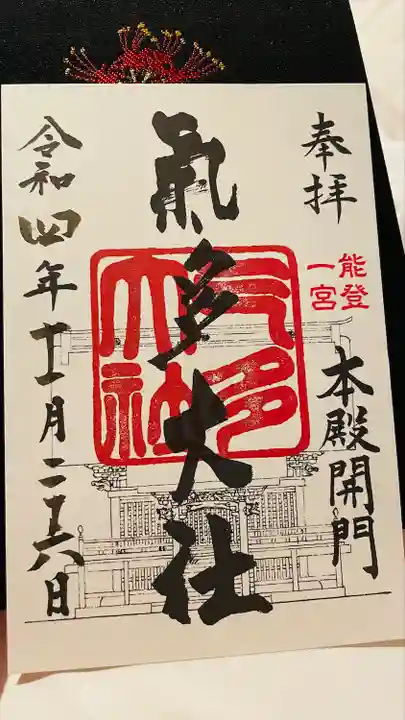 奉拝
能登
一宮
本殿開門
氣多大社
氣多
大社
令和四年十一月二十六日